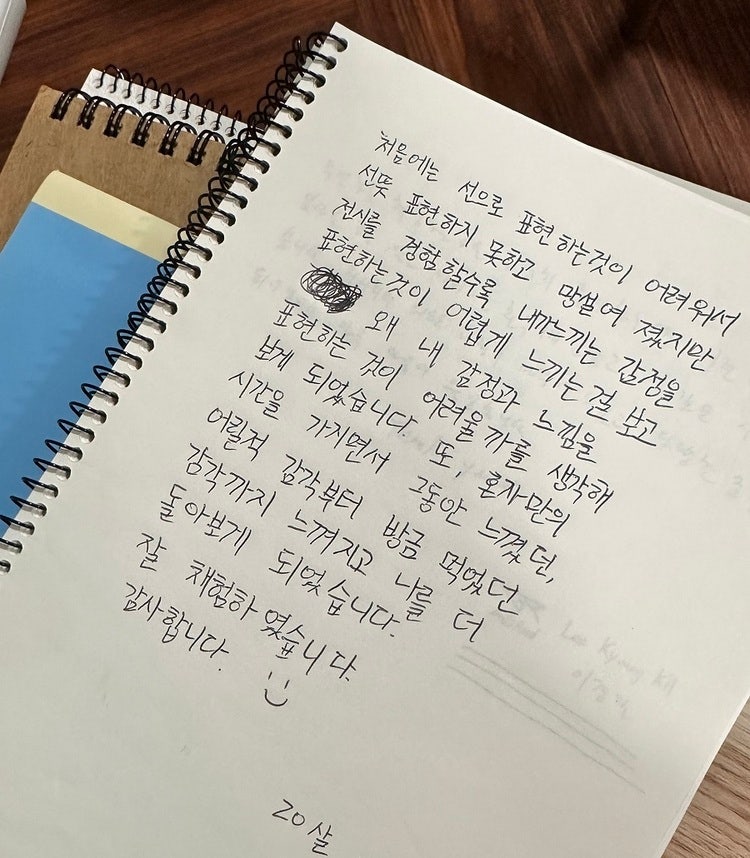 처음에는 선으로 표현하는것이 어려워서
선뜻 표현하지 못하고 망설여 졌지만
전시를 경험할수록 내가느끼는 감정을
표현하는것이 어렵게 느끼는걸 보고
왜 내 감정과 느낌을
표현하는 것이 어려울까를 생각해
보게 되었습니다. 또, 혼자만의
시간을 가지면서 그동안 느꼈던,
어릴적 감각부터 방금 먹었던
감각까지 느껴지고 나를 더
돌아보게 되었습니다.
잘 채험하였습니다.
감사합니다.
20살
Lee Kyung